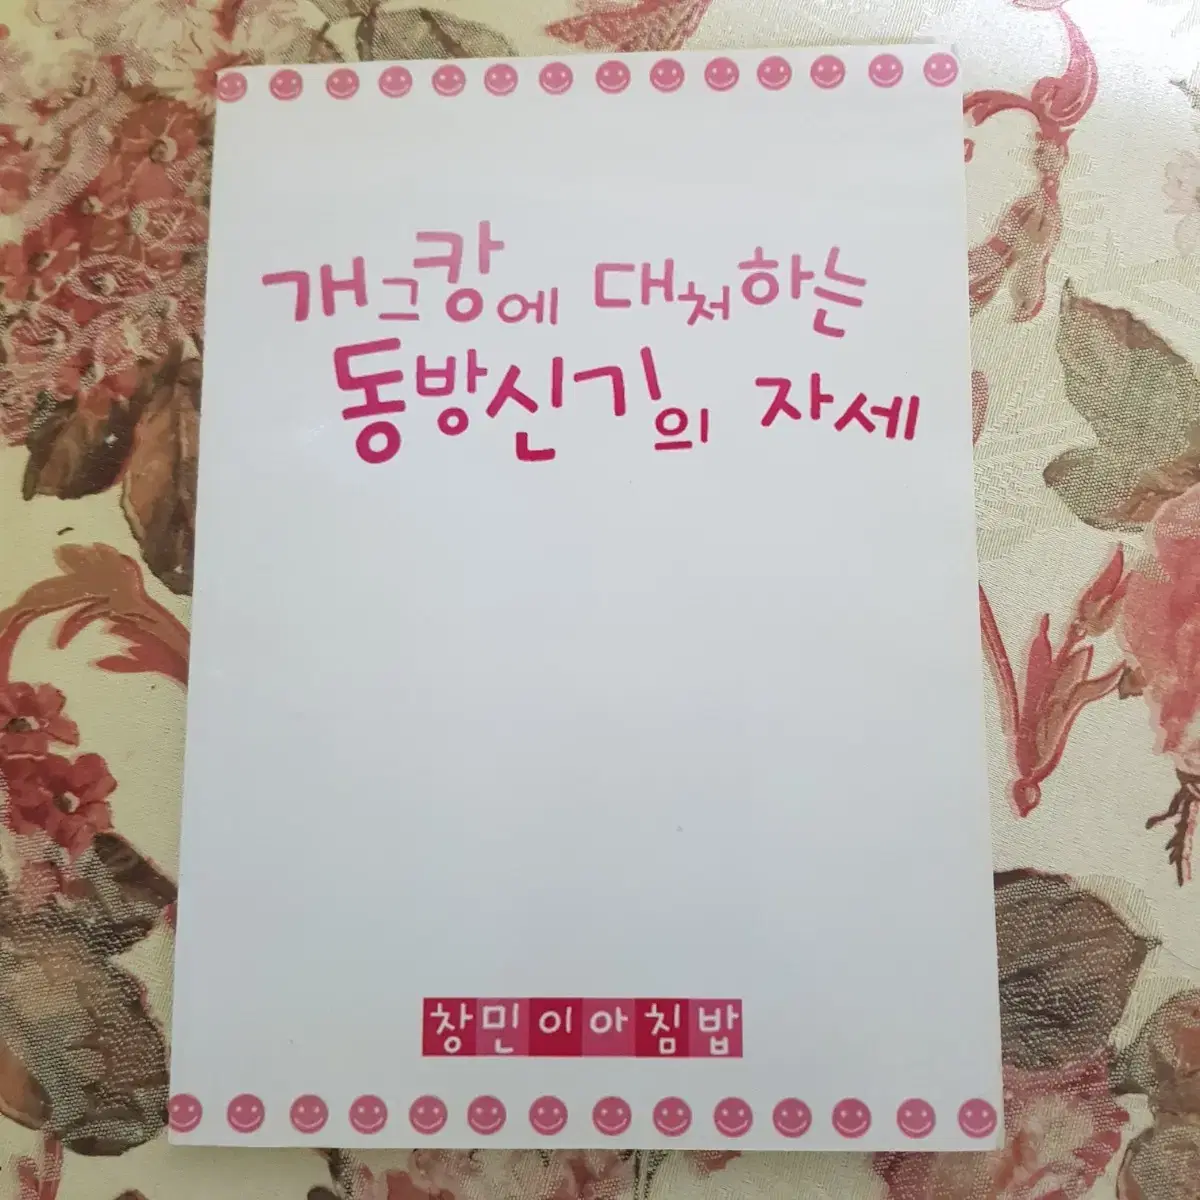 개그캉에 대처하는
동방신기의 자세
창민이아침밥